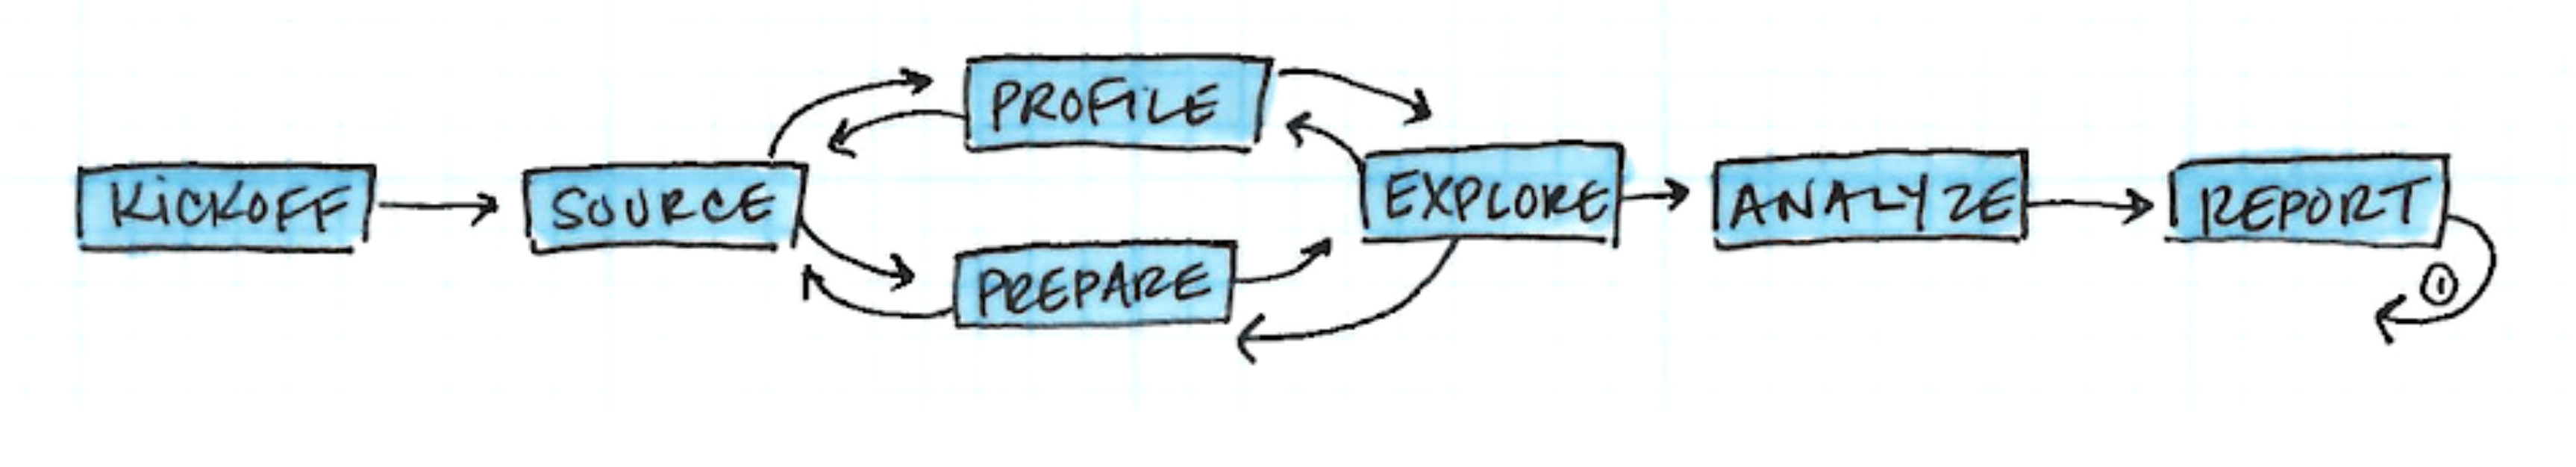 KiCKOFF
SOURCE
PROFILE
PREPARE
EXPLORE
ANALYZE
REPORT
①